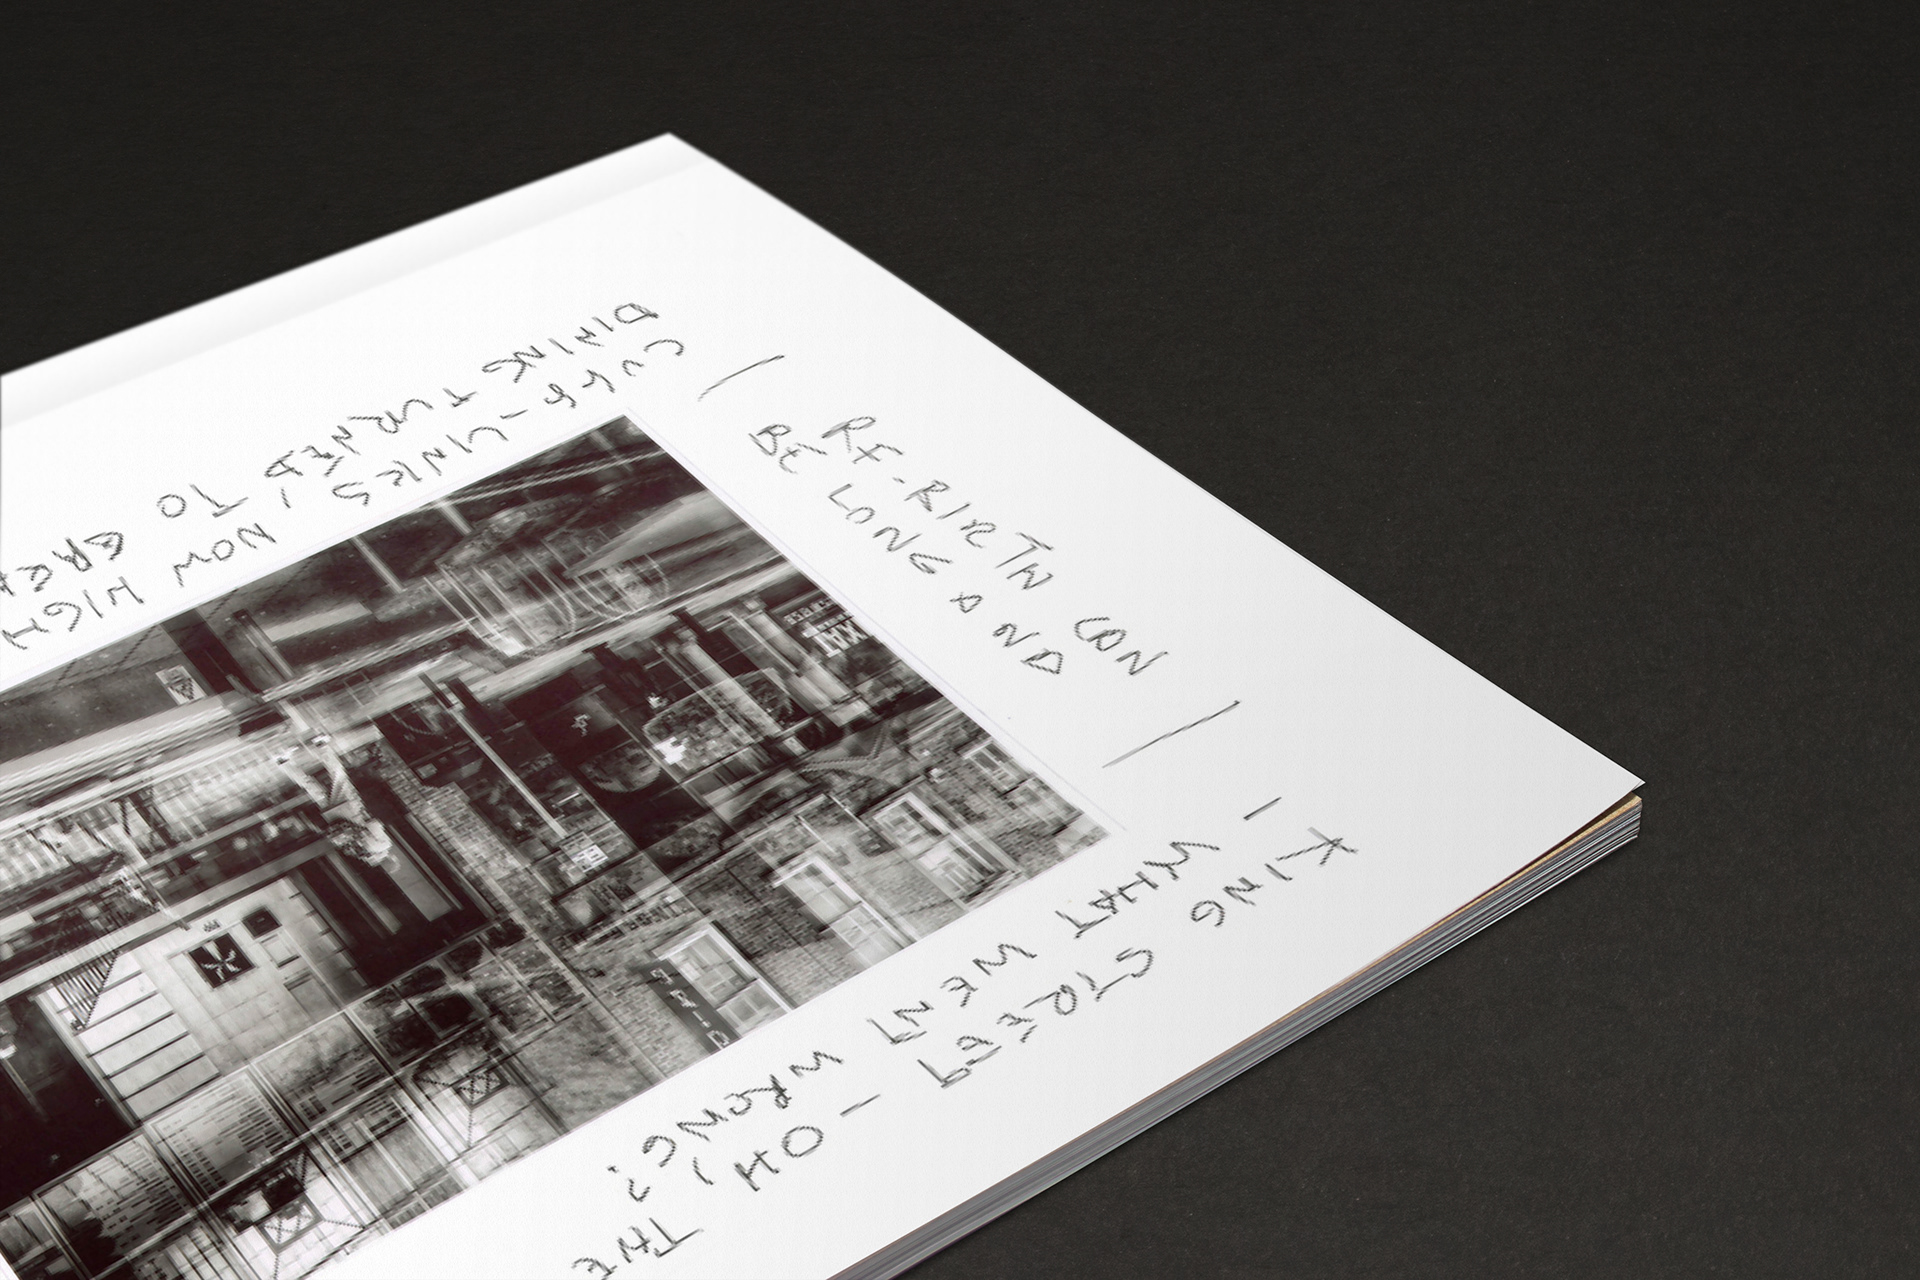 KING STREET – OH, THE
– WHAT WENT WRONG?
RE-BIRTH CAN
BE LONG AND
CUFF-LINKS, NOW HIGH
DINING TURNED TO